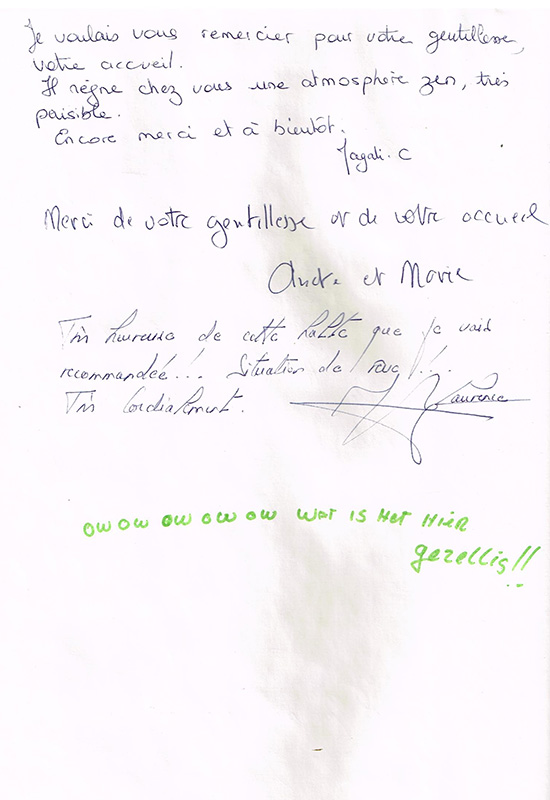 Je voulais vous remercier pour votre gentillesse,
votre accueil.
Il règne chez vous une atmosphère zen, très
paisible.
Encore merci et à bientôt.
Magali. C
Merci de votre gentillesse et de votre accueil
André et Marie
Très heureuse de cette halte que je vais
recommandée!.. Situation de rêve!!..
Très Cordialement. Laurence
OW OW OW OW OW WAT IS HET HIER
gezellig!!